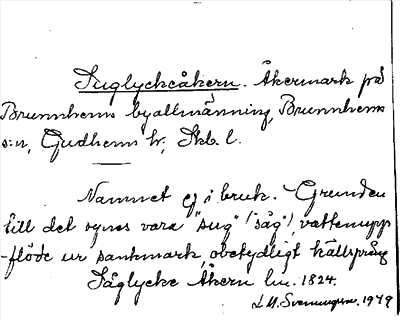 Suglyckeåkern. Åkermark på
Brunnhems byallmänning, Brunnhems
s:n, Gudhems hr, Skb. l.
Namnet ej i bruk. Grunden
till det synes vara "sug" ("såg"), vattenupp-
-flöde ur sankmark, obetydligt källsprång
Såglycke Åkern lm. 1824.
L.M. Svenungsson. 1949